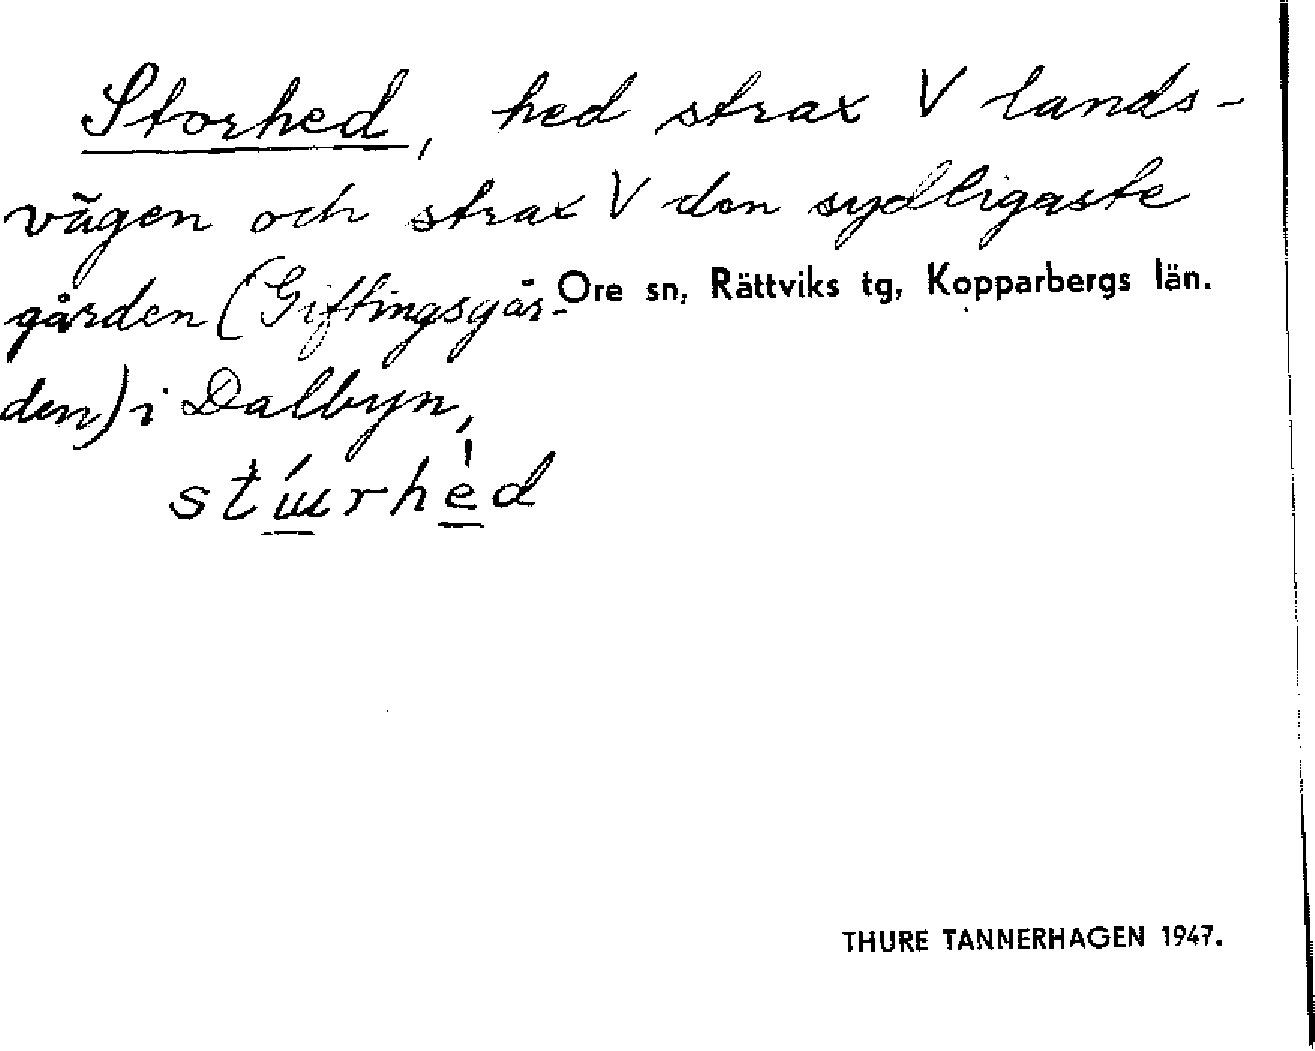 Storhed, hed strax V lands-
vägen och strax V den sydligaste
gården (Giftingsgår-
den) i Dalbyn,
Ore sn, Rättviks tg, Kopparbergs län.
THURE TANNERHAGEN 1947.